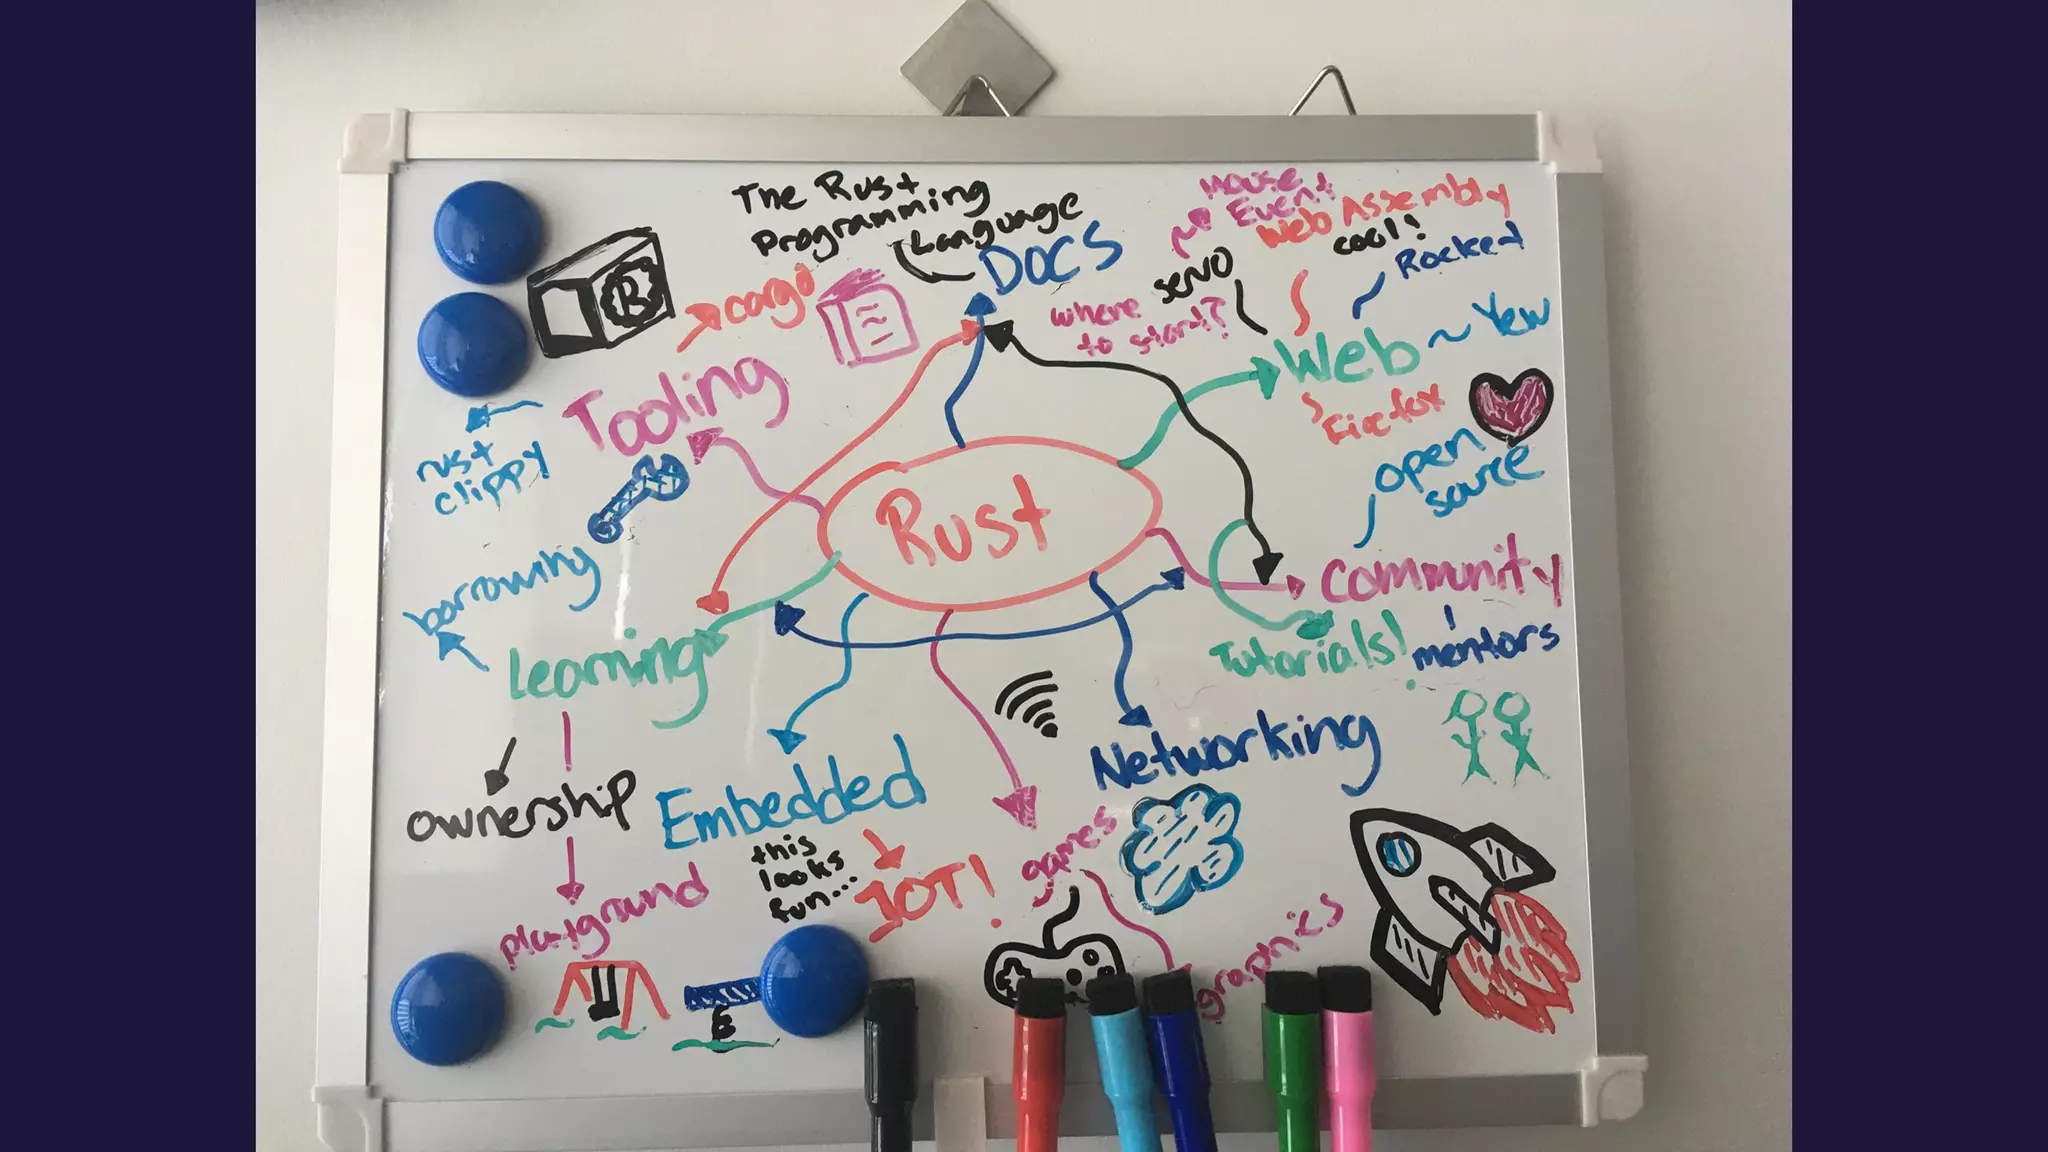 The Rust
Programming
Language
DOCS
Mouse
Event
Web Assembly
cool!
Rocket
servo
where
to start?
Web ~ Yew
Firefox
R
cargo
Tooling
rust
clippy
open
source
Rust
borrowing
Learning
community
Tutorials!
mentors
ownership
playground
Embedded
this
looks
fun...
IOT!
Networking
games
graphics